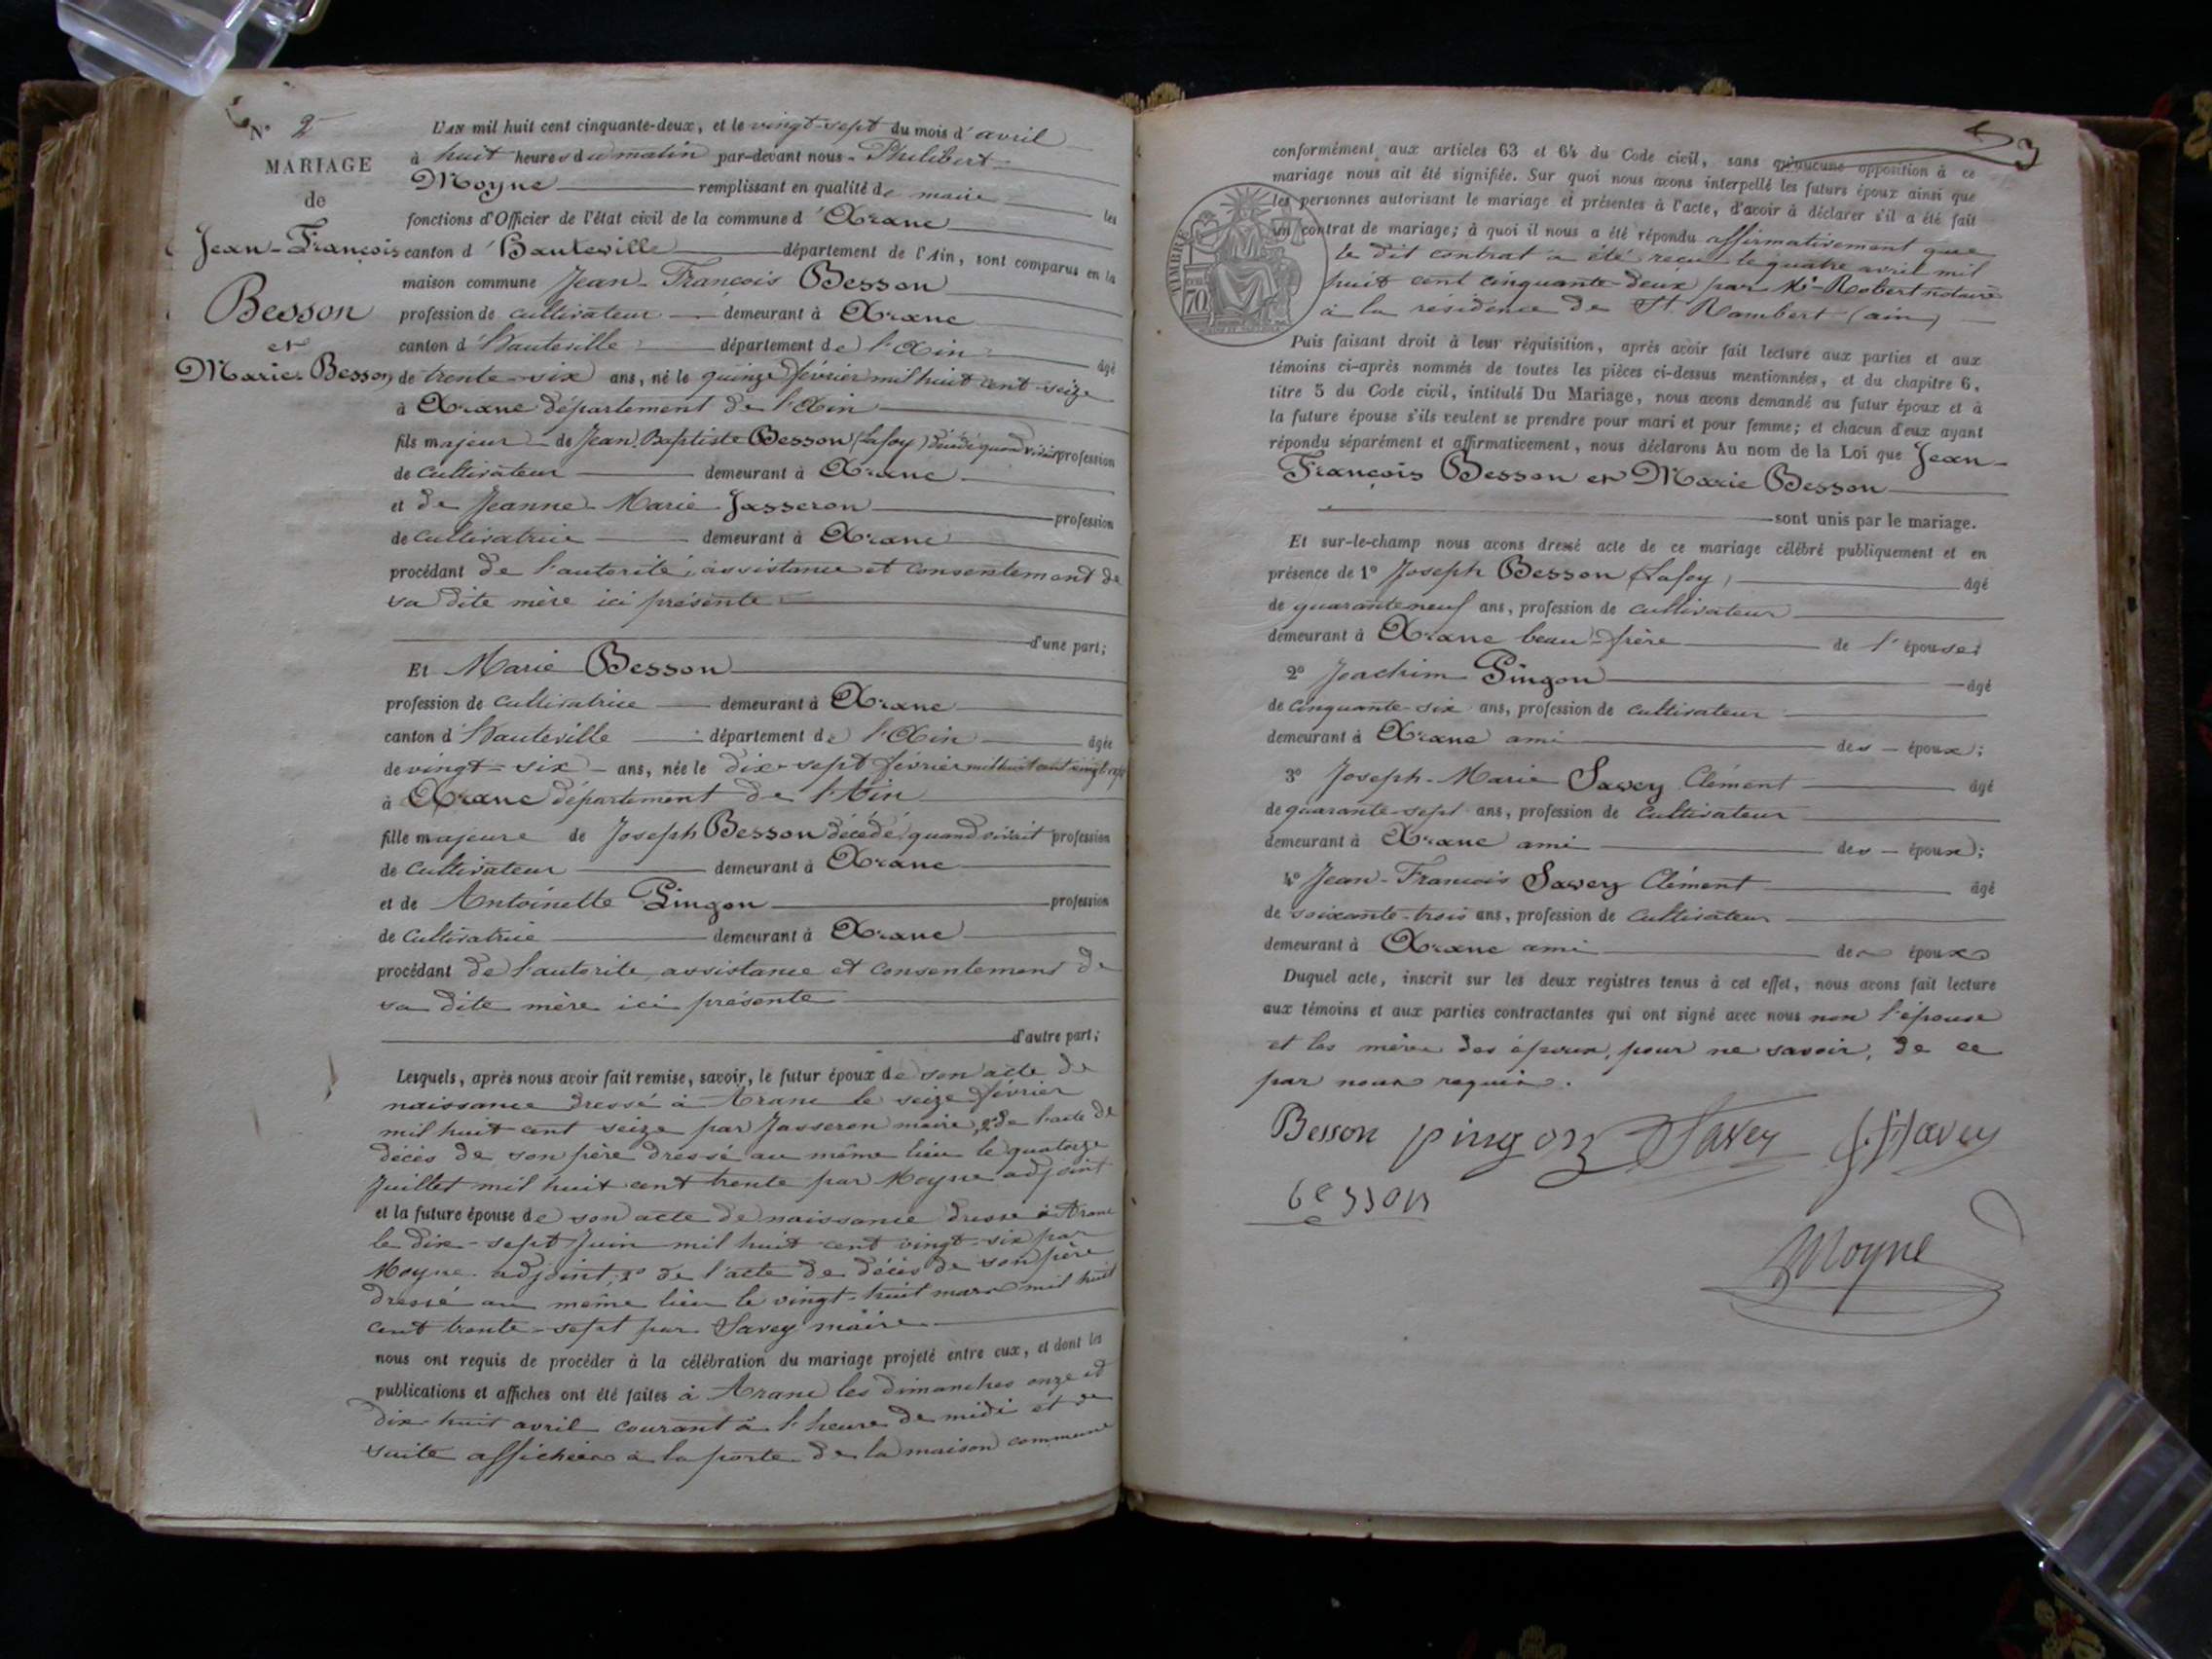 N° 2
MARIAGE
de
Jean-François
Besson
et
Marie Besson
L'AN mil huit cent cinquante-deux, et le vingt-sept du mois d'avril
à huit heures du matin par-devant nous Philibert
Moyne remplissant en qualité de maire les
fonctions d'Officier de l'état civil de la commune d'Arane
canton d'Hauteville département de l'Ain, sont comparus en la
maison commune Jean-François Besson
profession de cultivateur demeurant à Arane
canton d'Hauteville département de l'Ain âgé
de trente-six ans, né le quinze février mil huit cent seize
à Arane département de l'Ain
fils majeur de Jean-Baptiste Besson (Lafoy) décédé quand vivait profession
de cultivateur demeurant à Arane
et de Jeanne-Marie Jasseron profession
de cultivatrice demeurant à Arane
procédant de l'autorité, assistance et consentement de
sa dite mère ici présente
d'une part;
Et Marie Besson
profession de cultivatrice demeurant à Arane
canton d'Hauteville département de l'Ain âgée
de vingt-six ans, née le dix-sept février mil huit cent vingt
à Arane département de l'Ain
fille majeure de Joseph Besson décédé, quand vivait profession
de cultivateur demeurant à Arane
et de Antoinette Pingon profession
de cultivatrice demeurant à Arane
procédant de l'autorité, assistance et consentement de
sa dite mère ici présente
d'autre part;
Lesquels, après nous avoir fait remise, savoir, le futur époux de son acte de
naissance dressé à Arane le seize février
mil huit cent seize par Jasseron maire, 2° de l'acte de
décès de son père dressé au même lieu le quatorze
Juillet mil huit cent trente par Moyne adjoint
et la future épouse de son acte de naissance dressé à Arane
le dix-sept Juin mil huit cent vingt-six par
Moyne adjoint, 2° de l'acte de décès de son père
dressé au même lieu le vingt-huit mars mil huit
cent trente-sept par Savey maire
nous ont requis de procéder à la célébration du mariage projeté entre eux, et dont les
publications et affiches ont été faites à Arane les dimanches onze et
dix-huit avril courant à l'heure de midi et de
suite affichées à la porte de la maison commune
3
conformément aux articles 63 et 64 du Code civil, sans qu'aucune opposition à ce
mariage nous ait été signifiée. Sur quoi nous avons interpellé les futurs époux ainsi que
les personnes autorisant le mariage et présentes à l'acte, d'avoir à déclarer s'il a été fait
un contrat de mariage; à quoi il nous a été répondu affirmativement que
le dit contrat a été reçu le quatre avril mil
huit cent cinquante-deux par Me Robert notaire
à la résidence de St Rambert (ain)
TIMBRE
70
Puis faisant droit à leur réquisition, après avoir fait lecture aux parties et aux
témoins ci-après nommés de toutes les pièces ci-dessus mentionnées, et du chapitre 6,
titre 5 du Code civil, intitulé Du Mariage, nous avons demandé au futur époux et à
la future épouse s'ils veulent se prendre pour mari et pour femme; et chacun d'eux ayant
répondu séparément et affirmativement, nous déclarons Au nom de la Loi que Jean-
François Besson et Marie Besson
sont unis par le mariage.
Et sur-le-champ nous avons dressé acte de ce mariage célébré publiquement et en
présence de 1° Joseph Besson (Lafoy) âgé
de quarante neuf ans, profession de cultivateur
demeurant à Arane beau-frère de l'épouse;
2° Joachim Pingon âgé
de cinquante-six ans, profession de cultivateur
demeurant à Arane ami des époux;
3° Joseph-Marie Savey Clément âgé
de quarante-sept ans, profession de cultivateur
demeurant à Arane ami des époux;
4° Jean-François Savey Clément âgé
de soixante-trois ans, profession de cultivateur
demeurant à Arane ami des époux
Duquel acte, inscrit sur les deux registres tenus à cet effet, nous avons fait lecture
aux témoins et aux parties contractantes qui ont signé avec nous non l'épouse
et les mères des époux, pour ne savoir, de ce
par nous requis.
Besson pingon Savey Savey
besson
Moyne